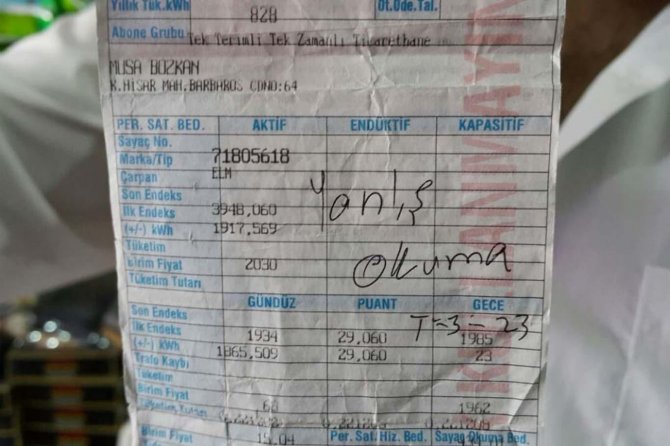 Yıllık Tük.kWh 828 Öt.Öde.Tal.
Abone Grubu Tek Terimli Tek Zamanlı Ticarethane
MUSA BOZKAN
K.HİSAR MAH.BARBAROS CDNO:64
PER. SAT. BED. AKTİF ENDÜKTİF KAPASİTİF
Sayaç No.
Marka/Tip 71805618
Çarpan ELM
Son Endeks
İlk Endeks 3948,060
(+/-) kWh 1917,569
Yanlış
Tüketim
Birim Fiyat 2030
Okuma
Tüketim Tutarı
GÜNDÜZ PUANT GECE
Son Endeks
T=3-23
İlk Endeks 1934 29,060 1985
(+/-) kWh 1865,509 29,060 23
Trafo Kaybı
Tüketim
Birim Fiyat 1962
Birim Fiyat 15.04 Per. Sat. Hiz. Bed. Sayaç Okuma Bed.